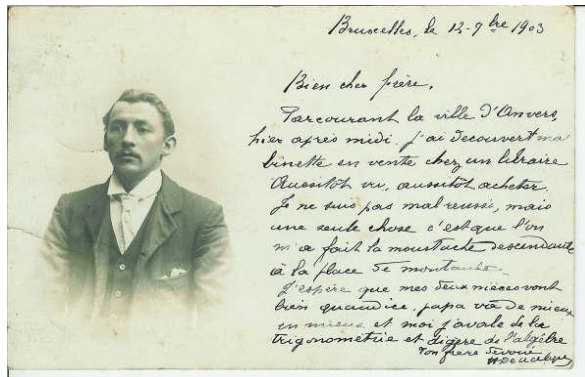 Bruxelles, le 12-9bre 1903
Bien cher frère,
Parcourant la ville d'Anvers,
hier après midi, j'ai decouvert ma
binette en vente chez un libraire
Aussitôt vu, aussitôt acheter.
Je ne suis pas mal reussi, mais
une seule chose c'est que l'on
m'a fait la moustache descendante
à la place de montante.
J'espère que mes deux nièces vont
bien quand ice. papa va de mieux
en mieux et moi j'avale de la
trigonometrie et digère de l'algèbre
Ton frère dévoué